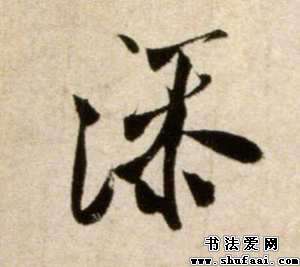 深
书法爱网
www.shufaai.com